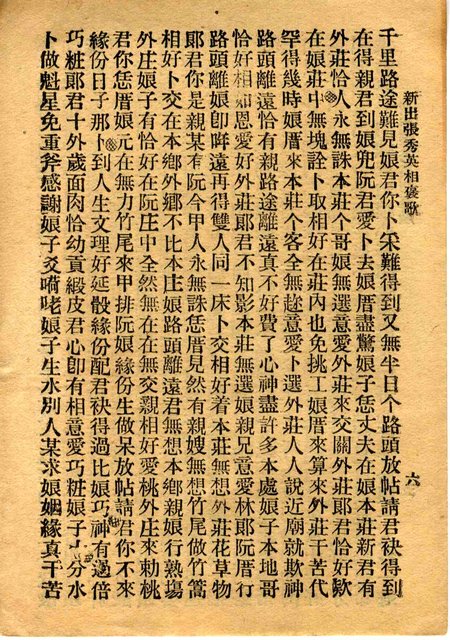 新出張秀英相褒歌
六
千里路途難見娘君你卜釆難得到又無半日个路頭放帖請君袂得到
在得親君到娘兜阮君愛卜去娘厝盡驚娘子恁丈夫在娘本莊新君有
外莊恰人永無誅本莊个哥娘無選意愛外莊來交關外莊郎君恰好歟
在娘莊中無塊詮卜取相好在莊內也免挑工娘厝來算來外莊干苦代
罕得幾時娘厝來本莊个客全無趁意愛卜選外莊人人說近廟就欺神
路頭離遠恰有親路途離遠真不好費了心神盡許多本處娘子本地哥
恰好相如恩愛好外莊郎君不知影本莊無選娘親兄意愛林郎阮厝行
路頭離娘卽時遠再得雙人同一床卜交相好着本莊無想外莊花草物
郎君你是親某有阮今甲人永無誅恁厝見然有親嫂無想竹尾做竹篙
相好卜交在本鄉外鄉不比本庄娘路頭離遠君無想本鄉親娘行熟塲
外庄娘子有恰好在阮庄中全然無在在無交親相好愛桃外庄來勅桃
君你恁厝娘元在無力竹尾來甲排阮娘緣份生做呆放帖請君你不來
緣份日子那卜到人生文理好延骰緣份配君袂得過比娘巧神有過倍
巧粧郎君十外歲面肉恰幼貢緞皮君心卽有相意愛巧粧娘子十分水
卜做魁星免重斧感謝娘子爻嘀咾娘子生水別人某求娘姻緣真干苦